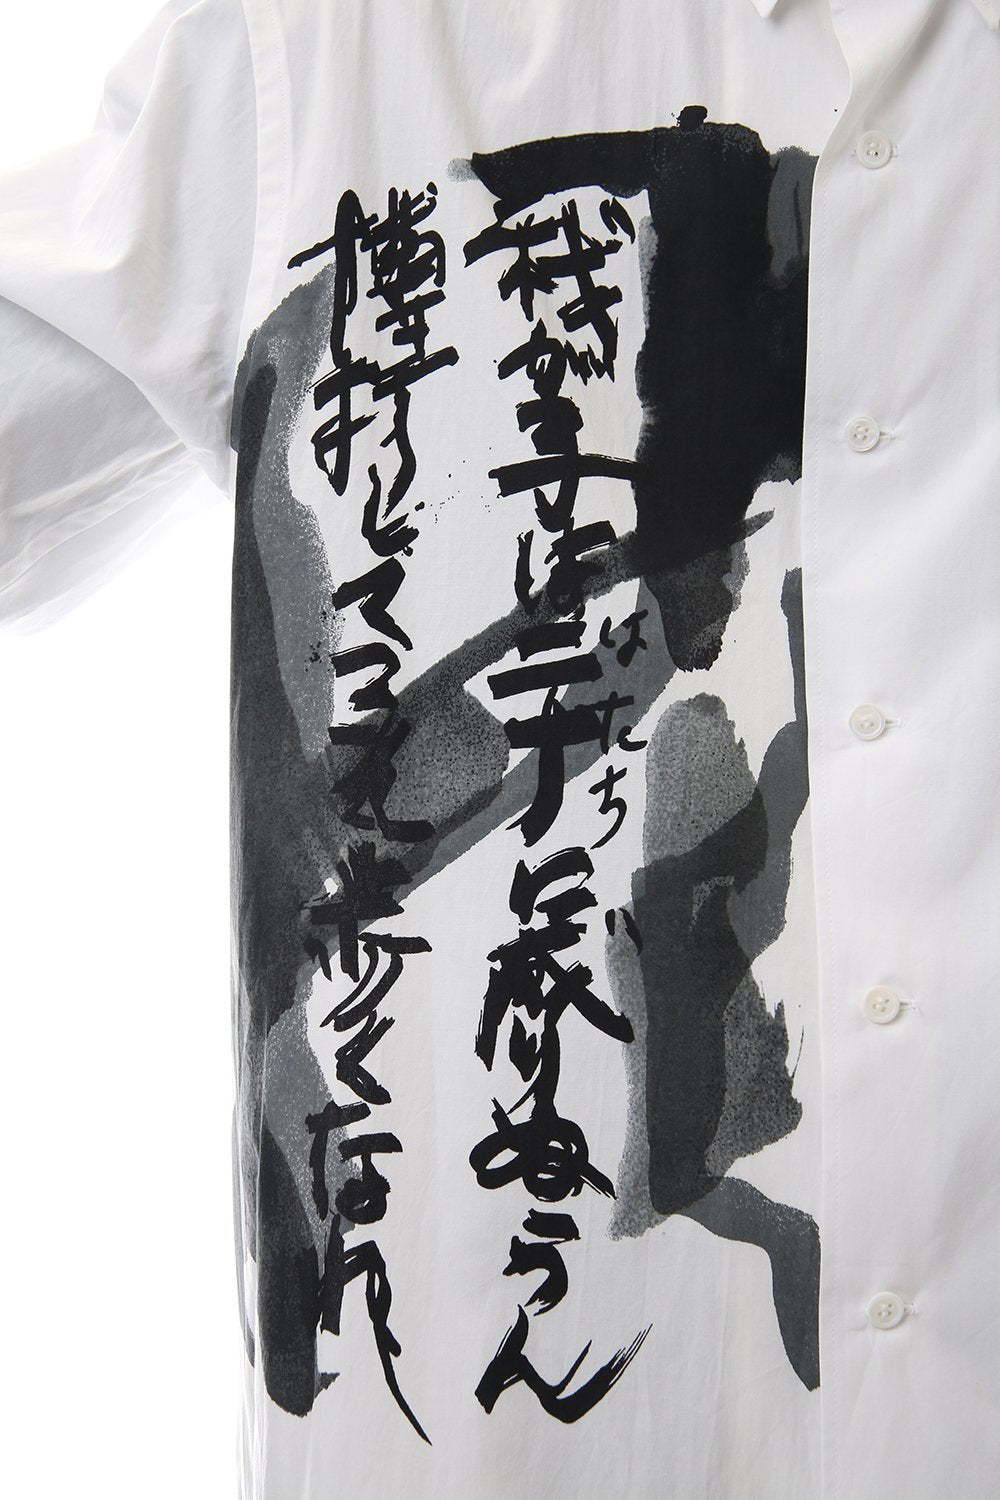 我が子は二十に成りぬらん
はたち
博打してこそ歩くなれ